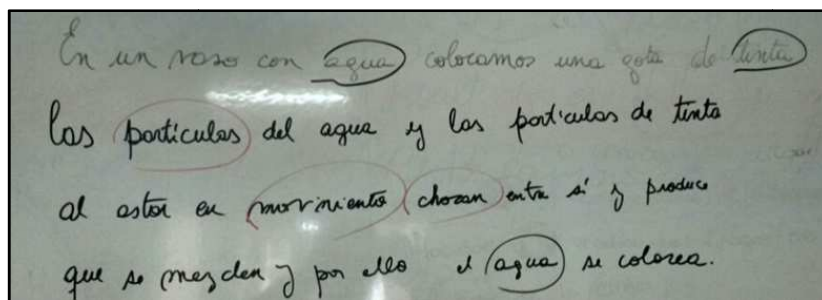 En un vaso con agua colocamos una gota de tinta
Las partículas del agua y las partículas de tinta
al estar en movimiento chocan entre sí y produce
que se mezclen y por ello el agua se colorea.